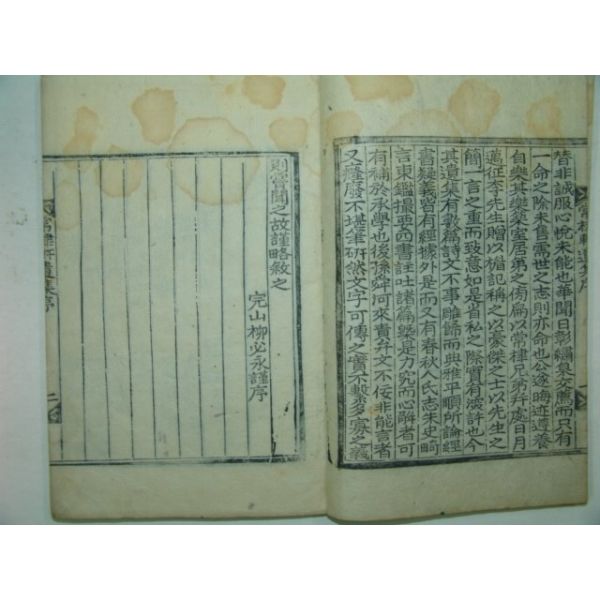 替非誠服心悅未能也華聞日彰編貝交薦而只有
命之除未售需世之志則亦命也公遂晦迹遵養
自樂其樂築室居第之傍扁以常棣兄弟并處日月
邁征李先生贈以楷記稱之以豪傑之士以先生之
簡一言之重而致意如是首私之際實有深許也今
其遺集有數篇詩文不事雕餙而典雅平順所論經
書疑義皆有經據外是而又有春秋人氏志生史畸
言東鑑撮要四書註吐諸篇樂是力究而心解者可
有補於承學也後孫舜河來責弁文不佞非能言者
又癃廢不堪筆硏然文字可傳之實不繫多寡之義
則嘗聞之故謹略敘之
完山柳必永謹序
常棣軒遺集序
二
常棣軒遺集序